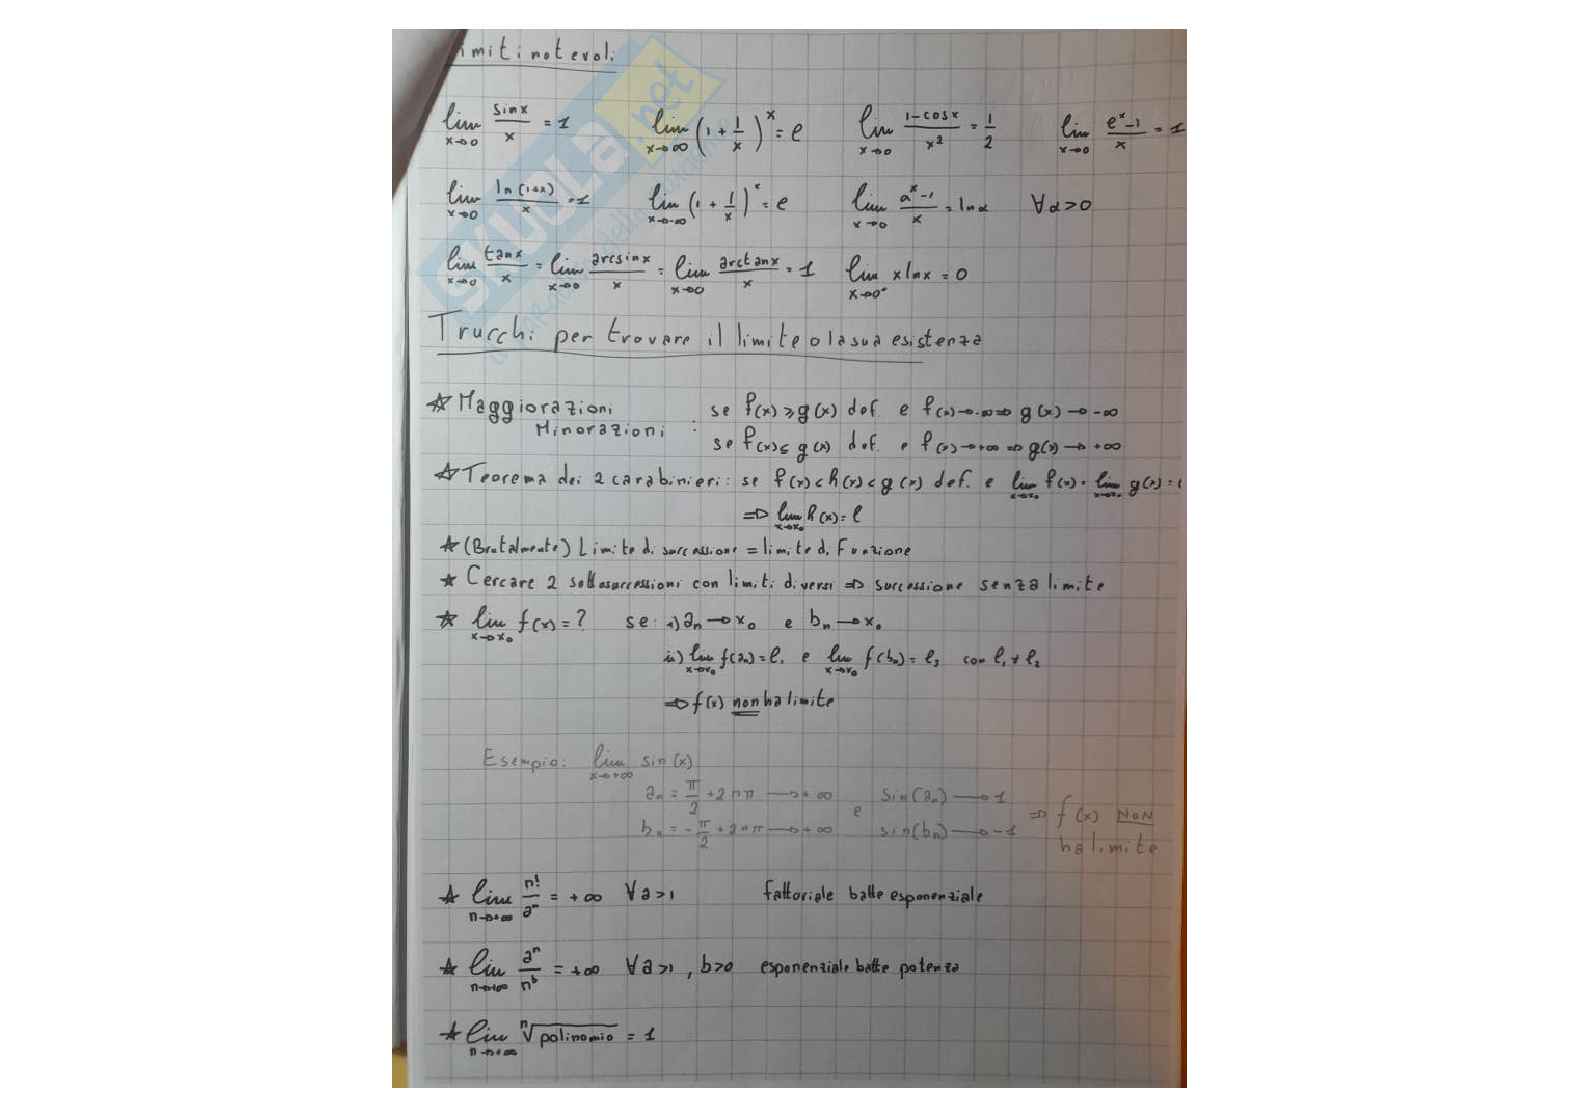 imiti notevoli
lim x→0 sinx/x = 1 lim x→∞ (1 + 1/x)^x = e lim x→0 1-cosx/x² = 1/2 lim x→0 e^x-1/x = 1
lim x→0 ln(1+x)/x = 1 lim x→-∞ (1 + 1/x)^x = e lim x→0 a^x-1/x = lnα ∀α>0
lim x→0 tanx/x = lim x→0 arcsinx/x = lim x→0 arctanx/x = 1 lim x→0⁺ xlnx = 0
Trucchi per trovare il limite o la sua esistenza
☆ Maggiorazioni
Minorazioni :
se f(x) ≥ g(x) def. e f(x)→-∞ ⇒ g(x)→-∞
se f(x) ≤ g(x) def. e f(x)→+∞ ⇒ g(x)→+∞
☆ Teorema dei 2 carabinieri: se f(x) < h(x) < g(x) def. e lim x→x₀ f(x) = lim x→x₀ g(x) = l
⇒ lim x→x₀ h(x) = l
☆ (Brutalmente) Limite di successione = limite di Funzione
☆ Cercare 2 sottosuccessioni con limiti diversi ⇒ successione senza limite
☆ lim x→x₀ f(x) = ? se: i) aₙ→x₀ e bₙ→x₀
ii) lim x→x₀ f(aₙ) = l₁ e lim x→x₀ f(bₙ) = l₂ con l₁ ≠ l₂
⇒ f(x) non ha limite
Esempio: lim x→+∞ sin(x)
aₙ = π/2 + 2nπ → +∞ e sin(aₙ) → 1
bₙ = -π/2 + 2nπ → +∞ sin(bₙ) → -1
⇒ f(x) NON
ha limite
☆ lim n→+∞ n!/aⁿ = +∞ ∀a>1 fattoriale batte esponenziale
☆ lim n→+∞ aⁿ/n^b = +∞ ∀a>1, b>0 esponenziale batte potenza
☆ lim n→+∞ ⁿ√polinomio = 1
SKUOLA.net